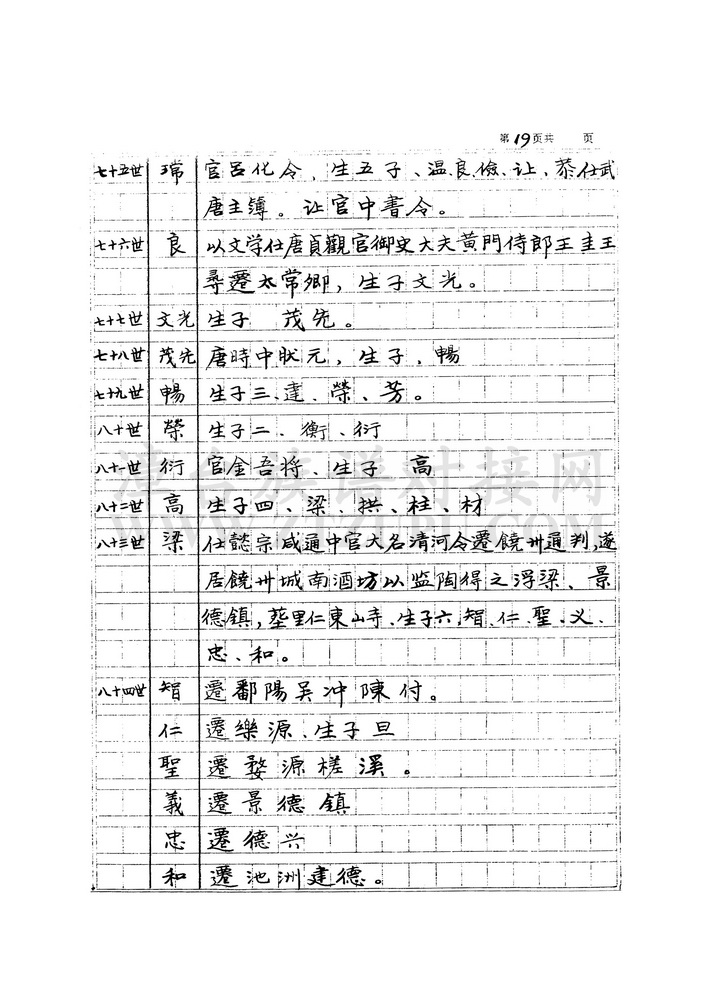 第19页共 页
七十五世 瑺 官呂化令、生五子、温、良、儉、让、恭仕武
唐主簿。让官中書令。
七十六世 良 以文学仕唐貞觀官御史大夫黄門侍郎王圭王
尋遷太常卿，生子文光。
七十七世 文光 生子 茂先。
七十八世 茂先 唐時中狀元，生子、暢
七十九世 暢 生子三、達、榮、芳。
八十世 榮 生子二、衡、衍
八十一世 衍 官金吾将、生子 高
八十二世 高 生子四、梁、拱、柱、材
八十三世 梁 仕懿宗咸通中官大名清河令遷饒州通判，遂
居饒州城南酒坊以监陶得之浮梁、景
德镇，塟里仁東山寺、生子六，智、仁、聖、义、
忠、和。
八十四世 智 遷鄱陽吴冲陳付。
仁 遷樂源、生子旦
聖 遷婺源槎溪。
義 遷景德镇
忠 遷德兴
和 遷池洲建德。
漳台族谱对接网